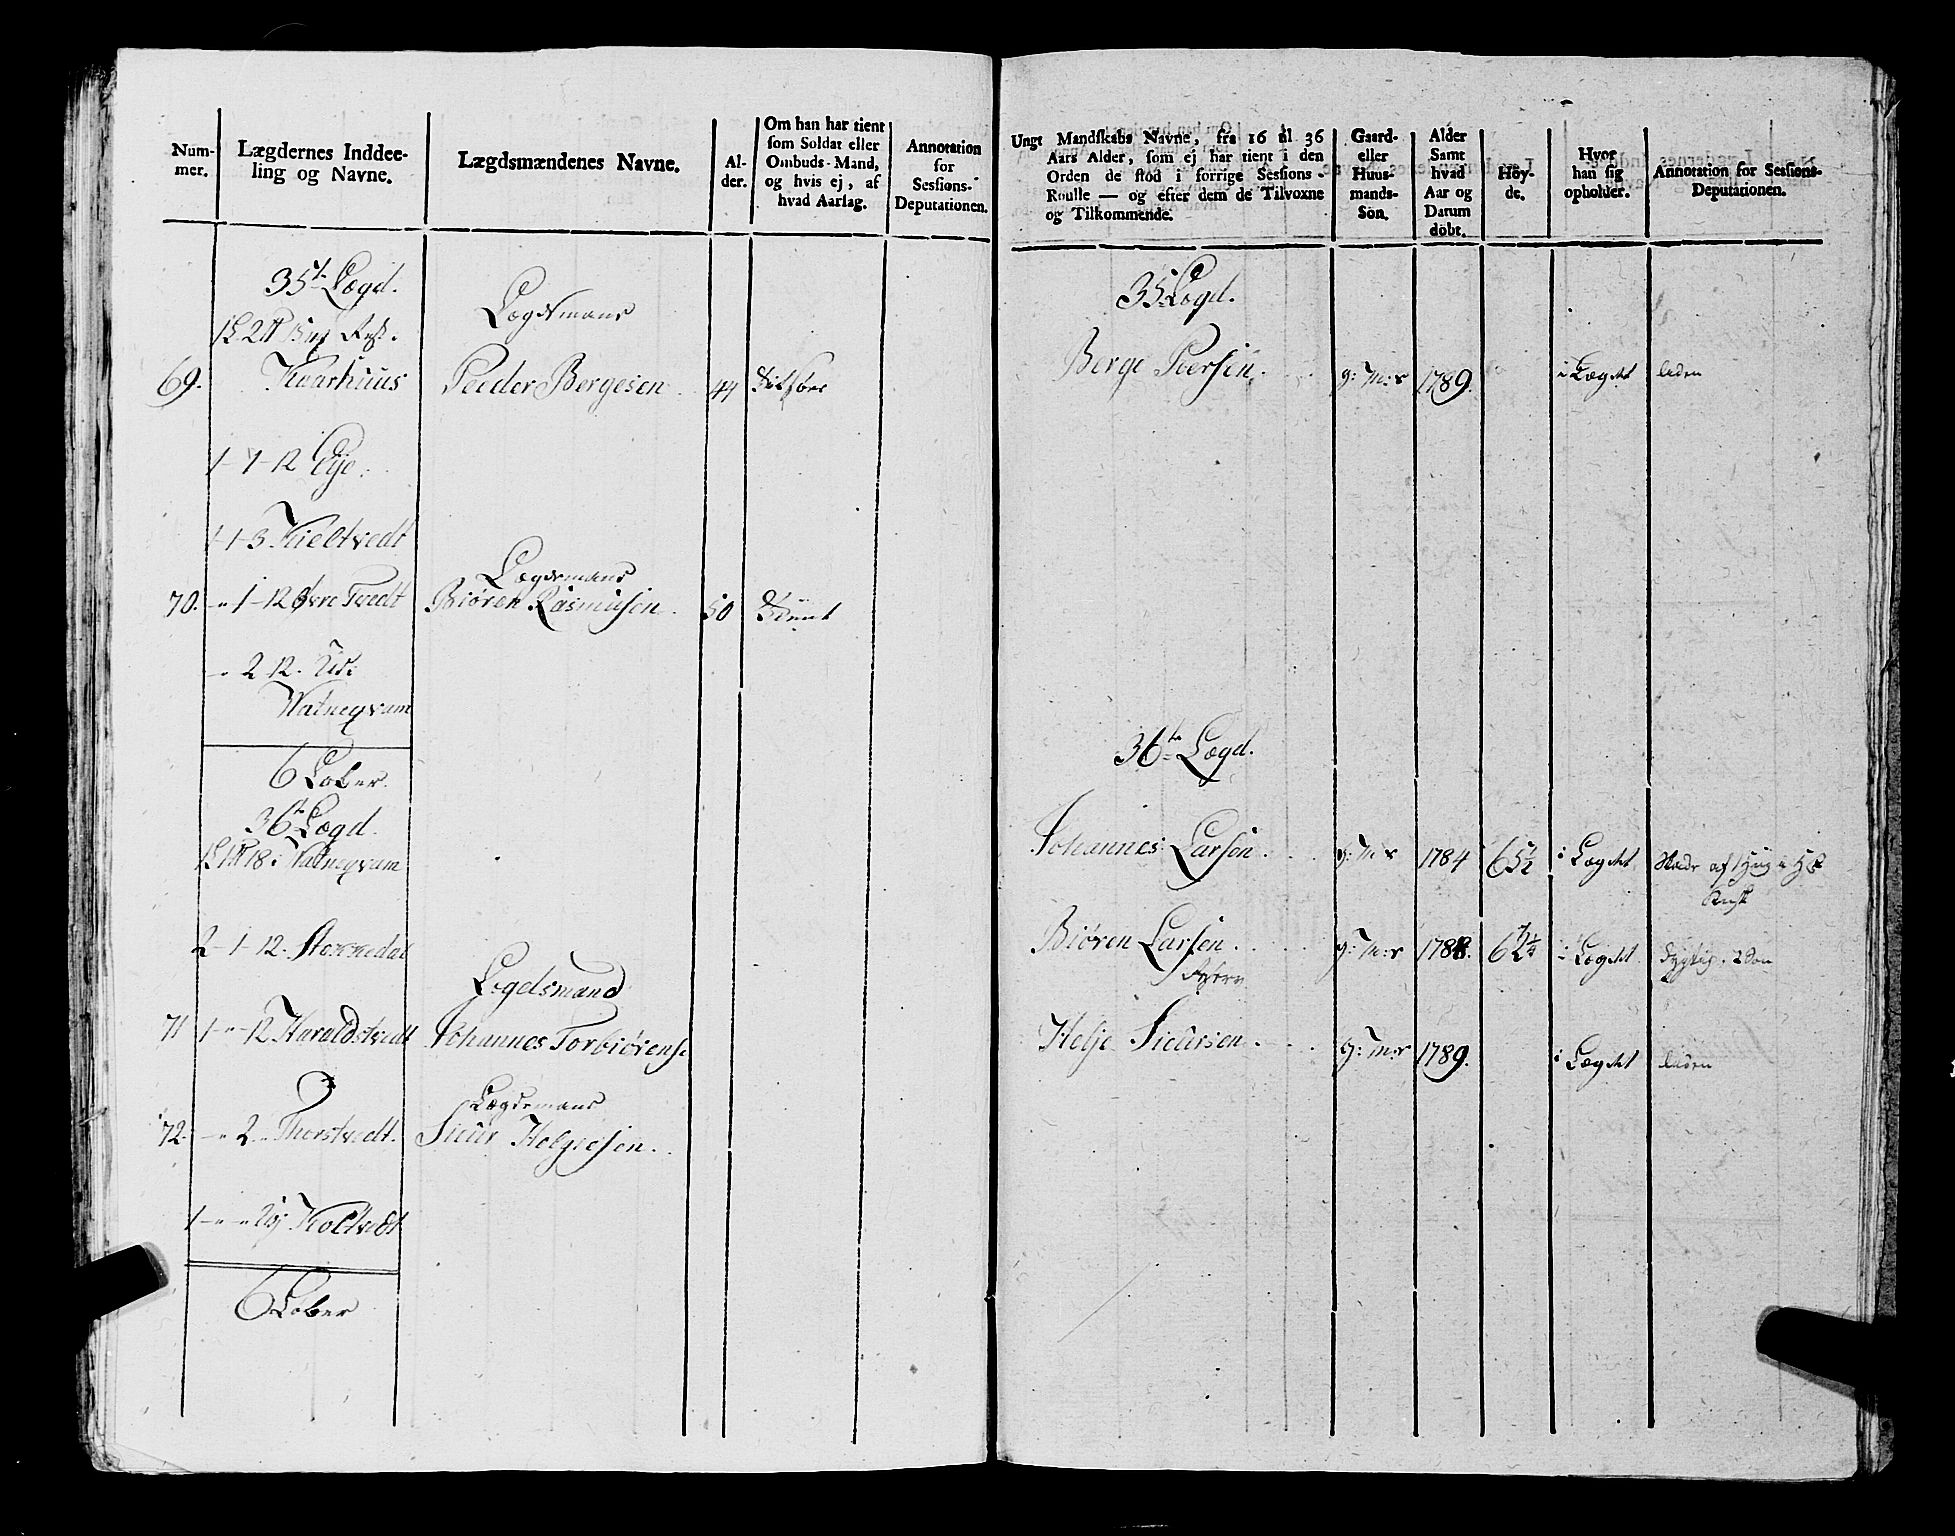 Num-
mer.
Lægdernes Inddee-
ling og Navne.
Lægdsmændenes Navne.
Al-
der.
Om han har tient
som Soldat eller
Ombuds-Mand,
og hvis ej, af
hvad Aarsag.
Annotation
for
Sessions-
Deputationen.
35te Lægd.
Lægdsmand
69. Kvarhuus Peeder Bergesen 44
1-1-12 Eye.
1-1-3 Kieltvedt
Lægdsmand
70. -"-1-12 Øvre Tvedt Biøren Rasmusen 50
-"-2-12.
Watneqvam
6 Løber.
36te Lægd.
Watneqvam
2-1-12. Stoxxedal
Lægdsmand
71 1-"-12 Haraldstvedt Johannes Torbiørens
Lægdsmand
72. -"-2-"- Thorstvedt. Siur Helgesen.
1-"-"- Koltvedt
6 Løber
Ungt Mandskabs Navne, fra 16 til 36
Aars Alder, som ej har tient i den
Orden de stod i forrige Sessions-
Roulle — og efter dem de Tilvoxne
og Tilkommende.
Gaard-
eller
Huus-
mands-
Søn.
Alder
Samt
hvad
Aar og
Datum
döbt.
Höy-
de.
Hvor
han sig
opholder.
Annotation for Sessions-
Deputationen.
35 Lægd.
Berge Peersen. g: M: s 1789. i Lægdet liden
36te Lægd.
Johannes Larsen. g: M: s 1784 65½ i Lægdet
Biøren Larsen. g: M: s 1788. i Lægdet dygtig.
Helje Siursen. g: M: s 1789. i Lægdet liden